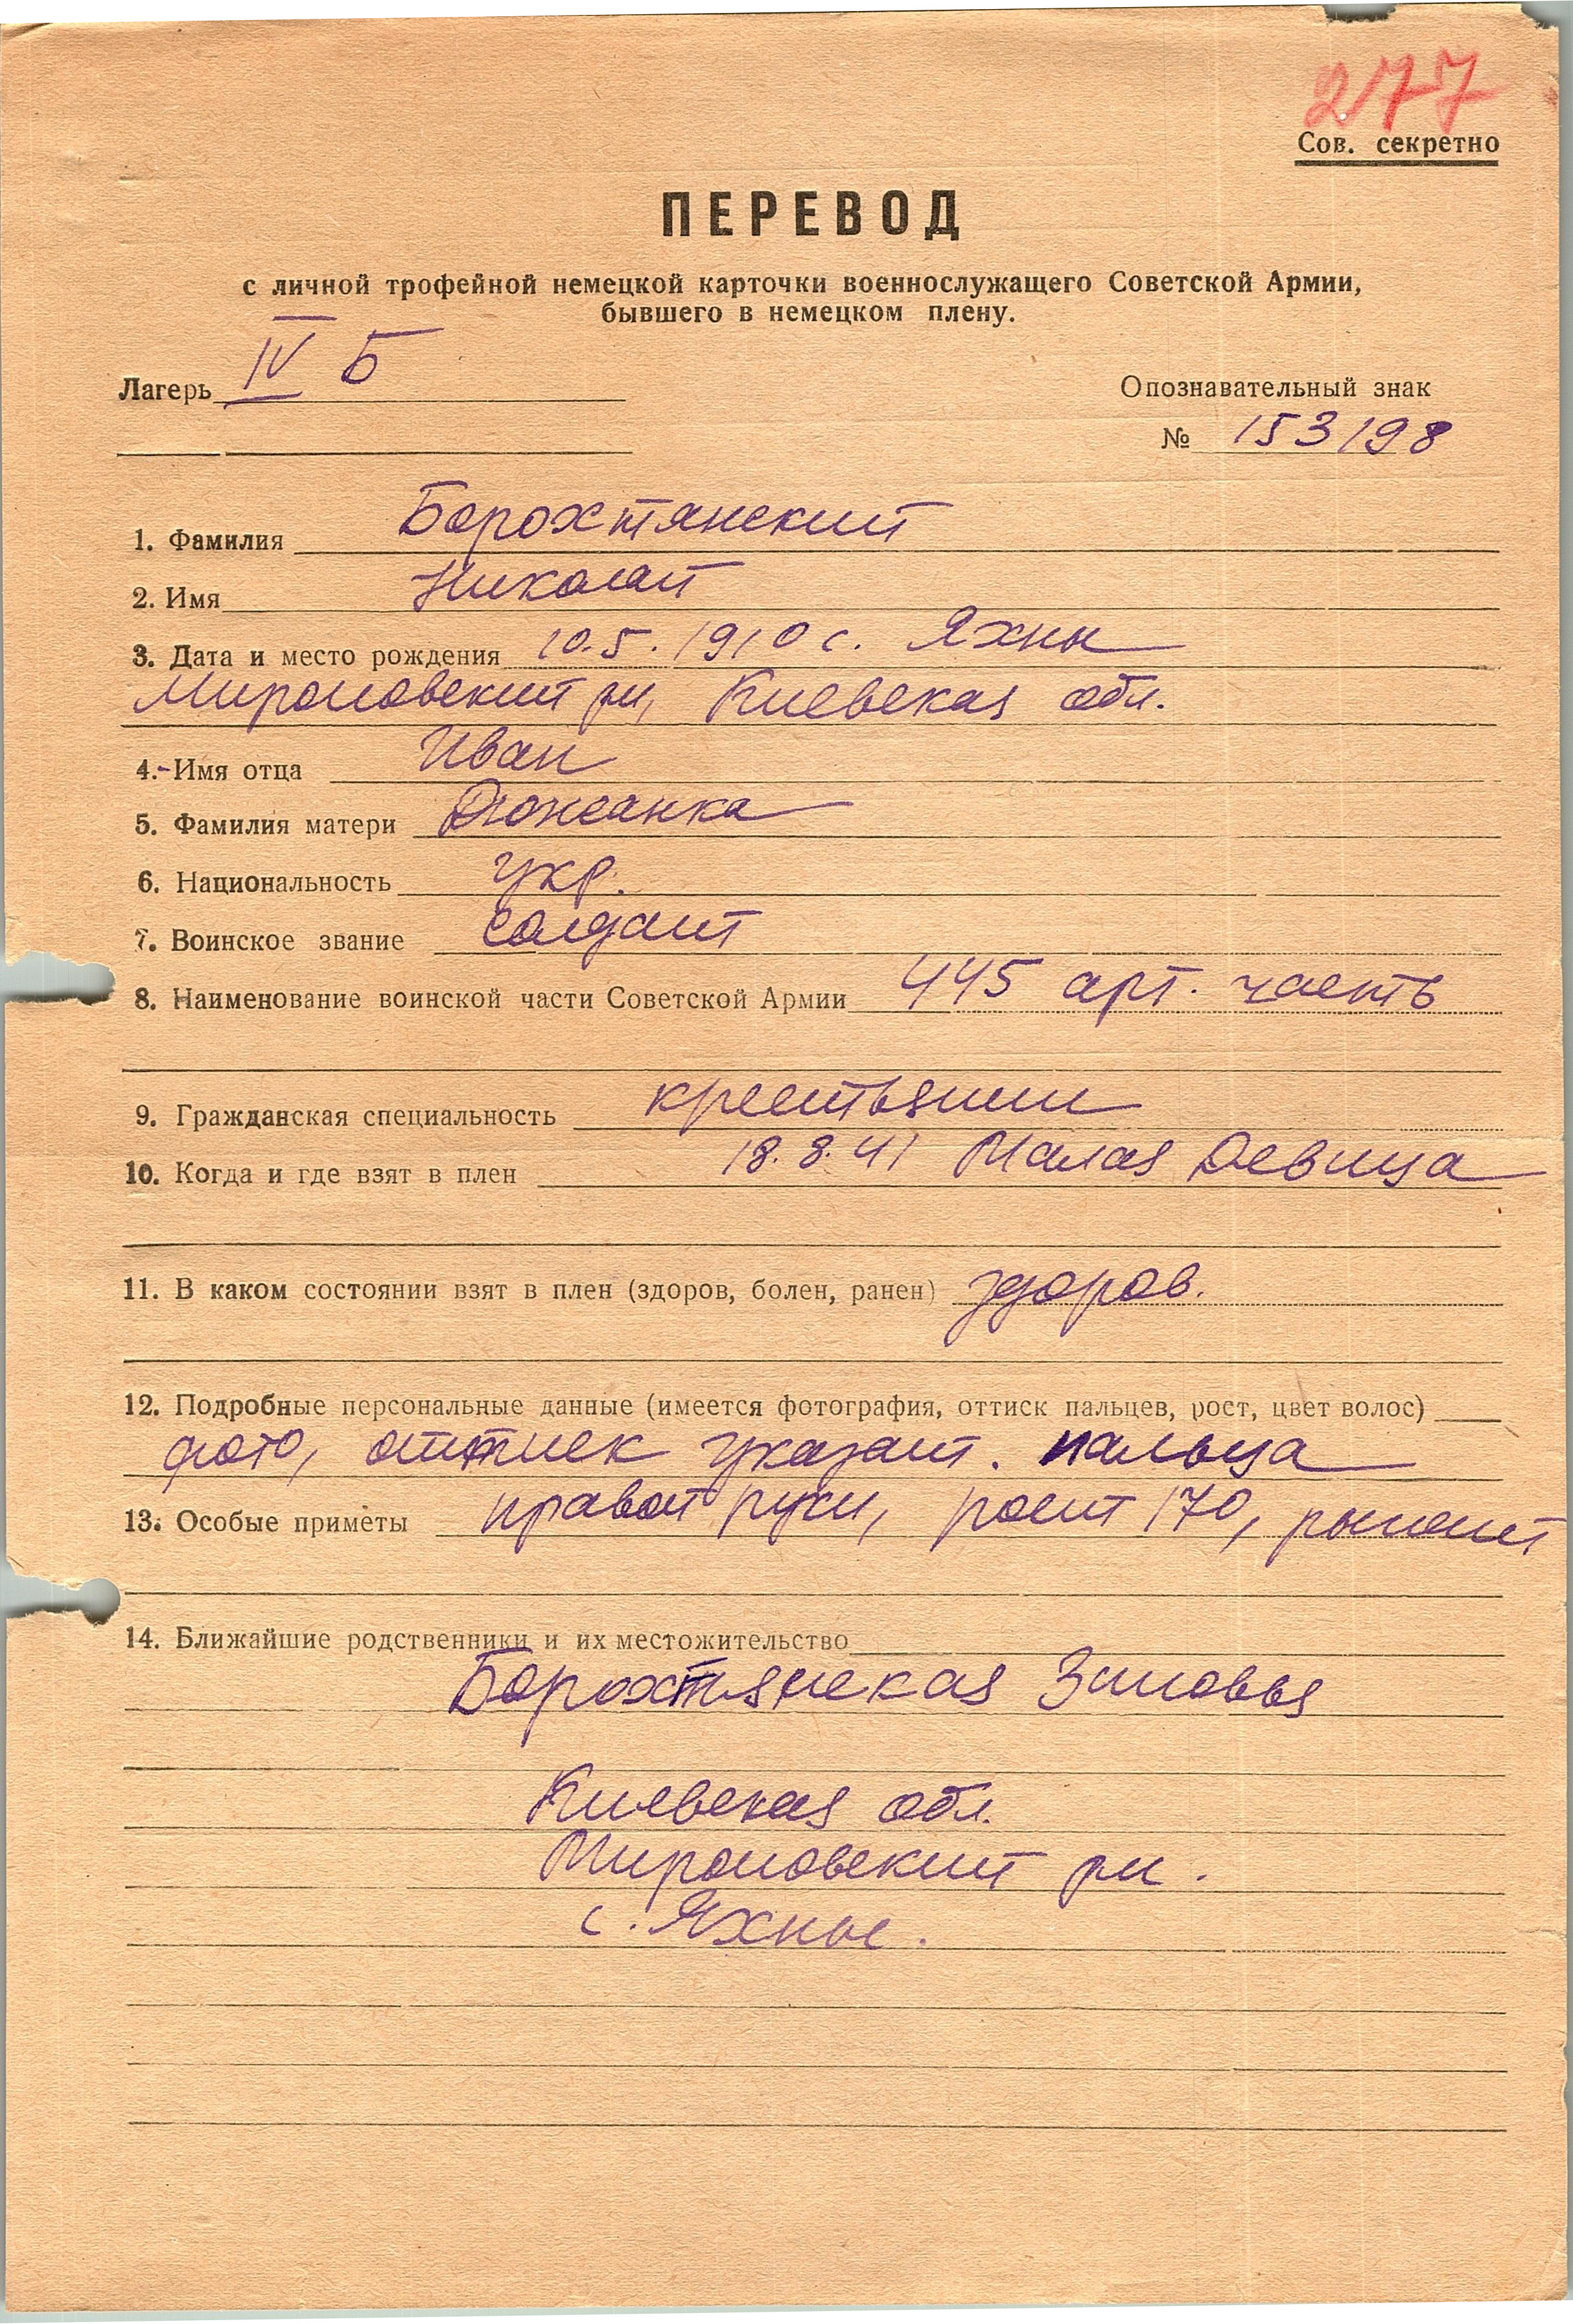 277
Сов. секретно
ПЕРЕВОД
с личной трофейной немецкой карточки военнослужащего Советской Армии,
бывшего в немецком плену.
Лагерь IV Б
Опознавательный знак
№ 153198
1. Фамилия Борохтянский
2. Имя Николай
3. Дата и место рождения 10.5.1910 с. Яхны
Мироновский рн, Киевская обл.
4. Имя отца Иван
5. Фамилия матери Дюжанка
6. Национальность укр.
7. Воинское звание солдат
8. Наименование воинской части Советской Армии 445 арт. часть
9. Гражданская специальность крестьянин
10. Когда и где взят в плен 18.8.41 Малая Девица
11. В каком состоянии взят в плен (здоров, болен, ранен) здоров.
12. Подробные персональные данные (имеется фотография, оттиск пальцев, рост, цвет волос)
фото, оттиск указат. пальца
13. Особые приметы правой руки, рост 170, рыжий
14. Ближайшие родственники и их местожительство
Борохтянская Зиновья
Киевская обл.
Мироновский рн.
с. Яхные.